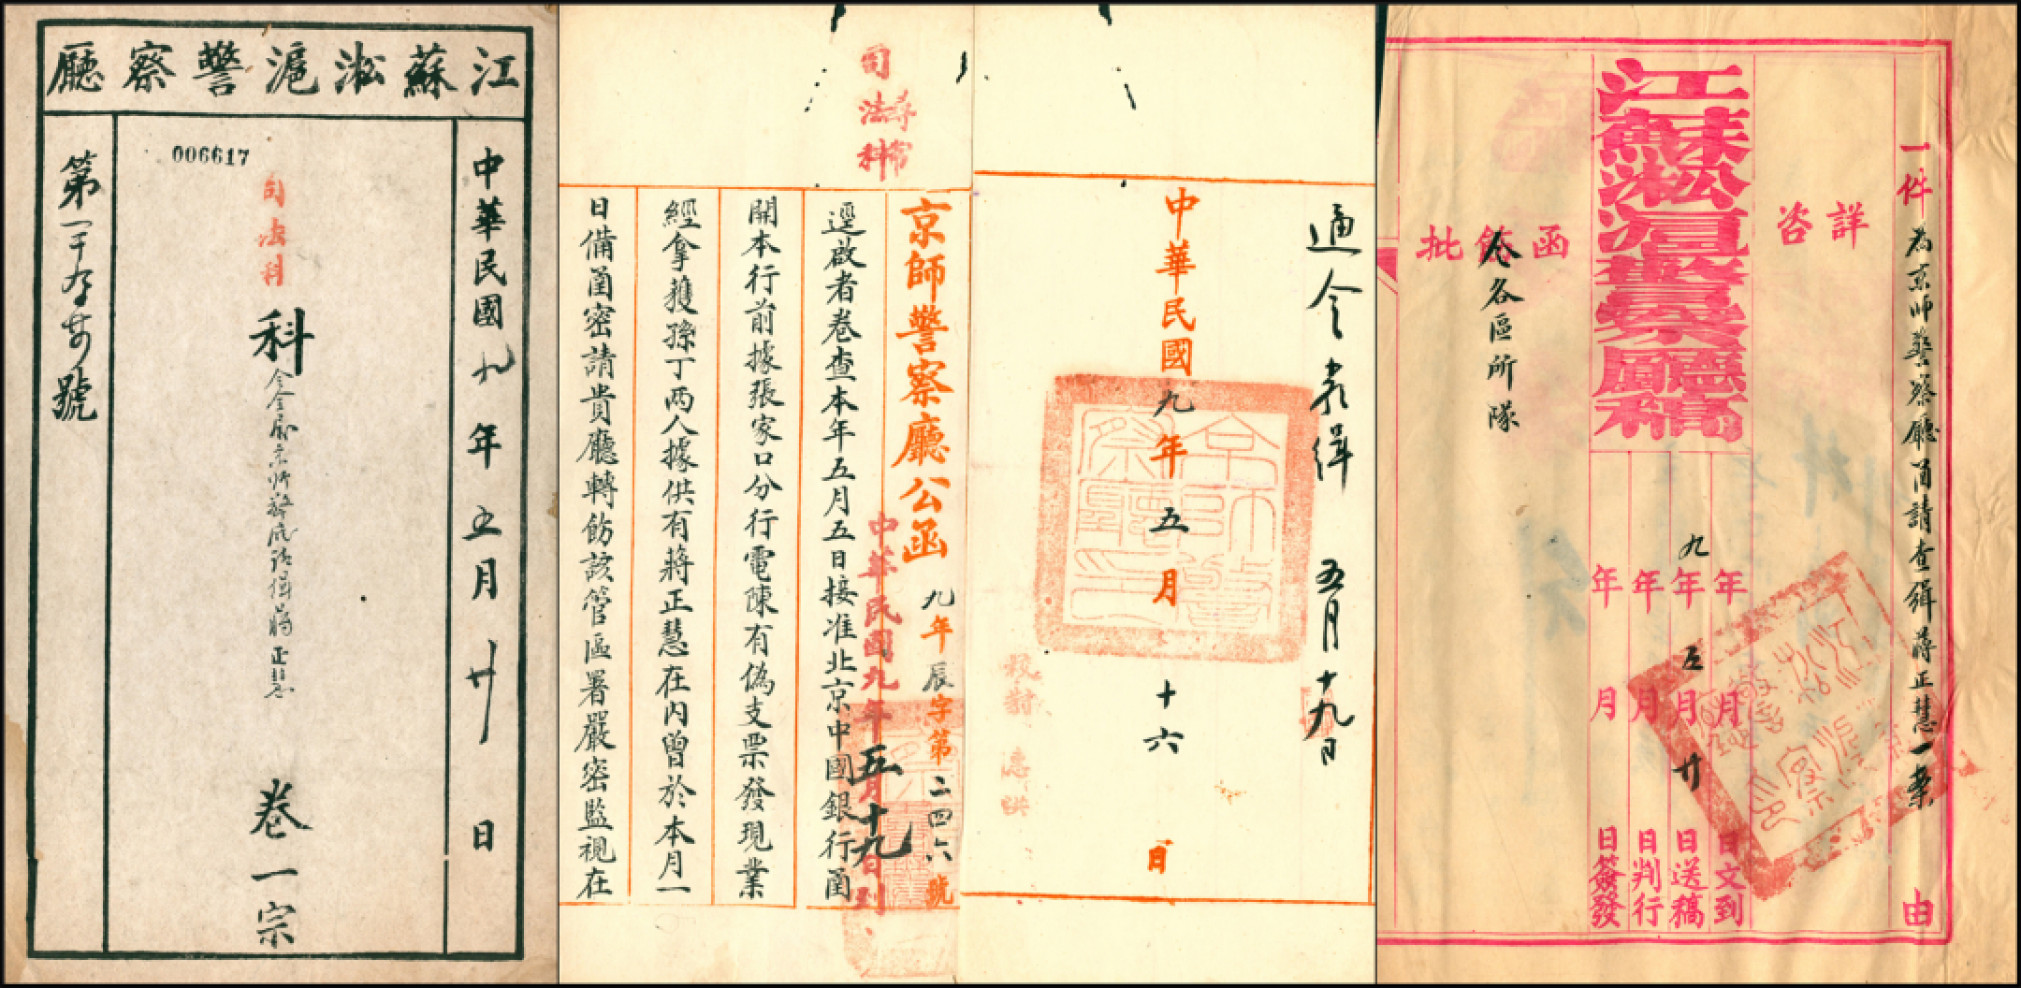 江蘇淞滬警察廳
中華民國九年五月廿日
006617
司法科
科
卷一宗
司法科
尋常
京師警察廳公函
九年辰字第二四六號
中華民國九年五月十九日到
逕啟者卷查本年五月五日接准北京中國銀行函
開本行前據張家口分行電陳有偽支票發現業
經拿獲孫丁两人據供有蔣正慧在内曾於本月一
日備函密請貴廳轉飭該管區署嚴密監視在
通令嚴緝 五月十九日
中華民國九年五月十六日
校對
一件為京師警察廳函請查緝蔣正慧一案由
詳咨
江蘇淞滬警察廳稿
年月日文到
九年五月廿日送稿
年月日判行
年月日簽發
函飭批
令各區所隊